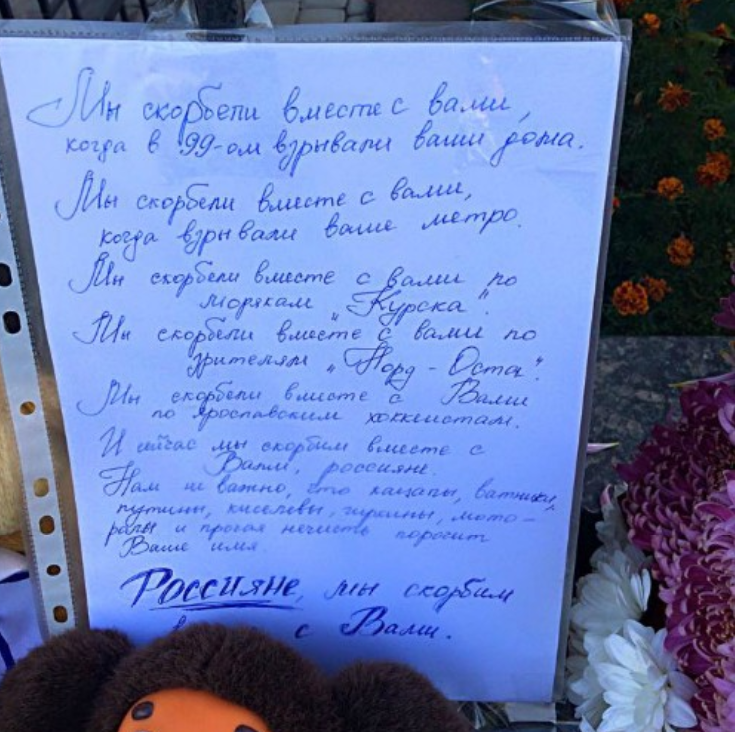 Мы скорбели вместе с вами,
когда в 99-ом взрывали ваши дома.
Мы скорбели вместе с вами,
когда взрывали ваше метро.
Мы скорбели вместе с вами по
морякам "Курска".
Мы скорбели вместе с вами по
зрителям "Норд - Оста".
Мы скорбели вместе с Вами
по ярославским хоккеистам.
И сейчас мы скорбим вместе с
Вами, россияне.
Нам не важно, что кацапы, ватники,
путины, киселевы, гиркины, мото-
ролы и прочая нечисть порочит
Ваше имя.
РОССИЯНЕ, мы скорбим
с Вами.